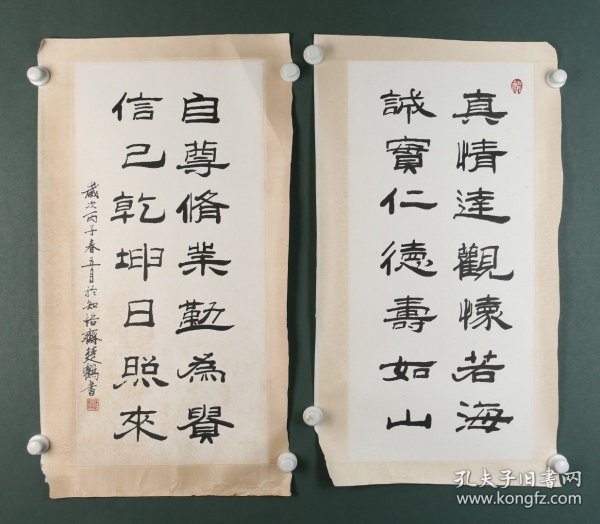 真情達觀懷若海
誠實仁德壽如山
自尊脩業勤為賢
信己乾坤日照來
歲次丙子春五月於知悟齋楚鶴書
孔夫子旧书网
www.kongfz.com